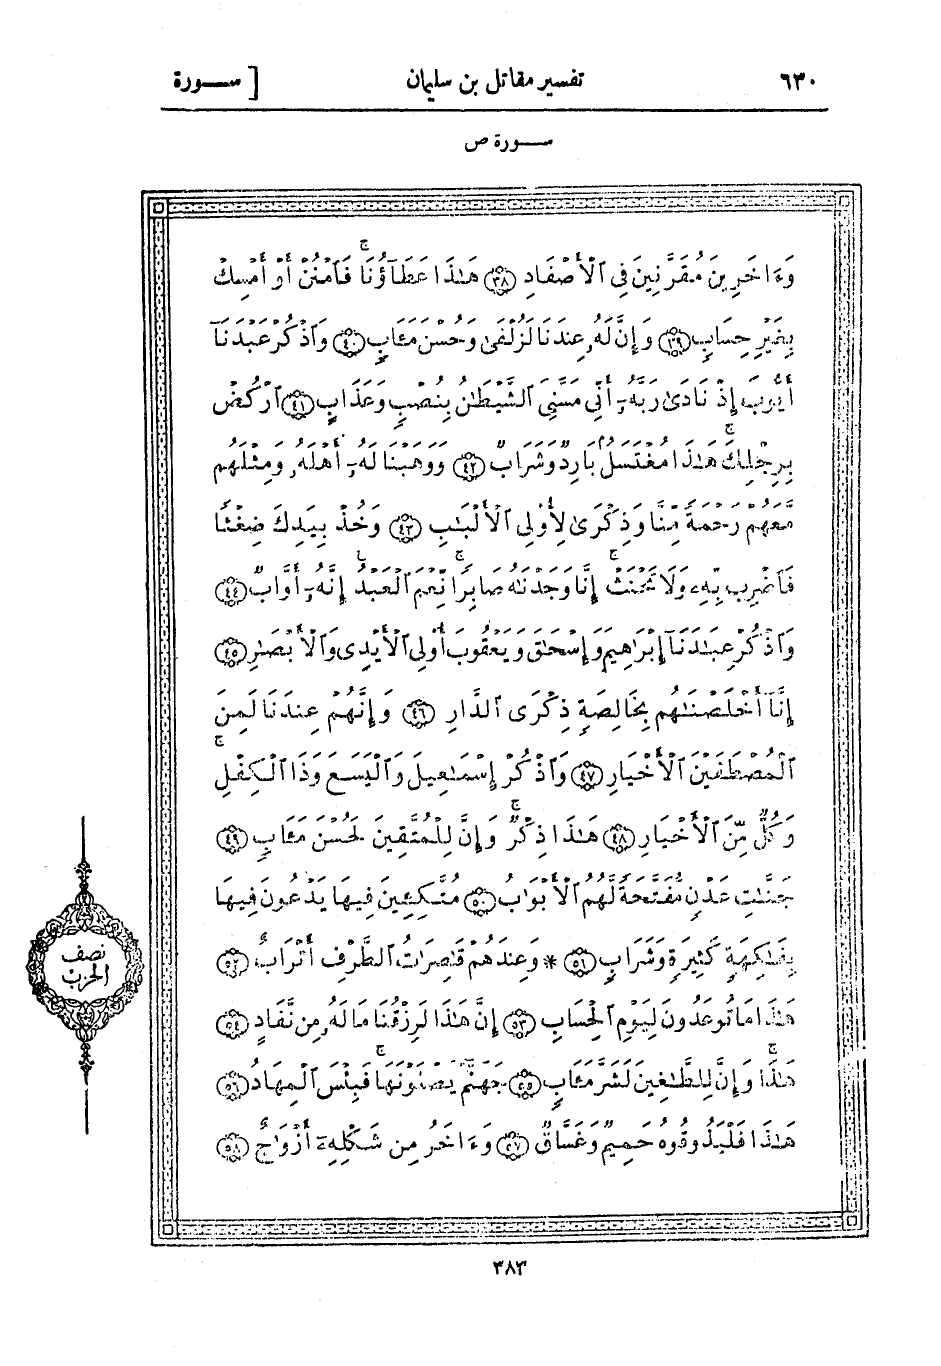 ٦٣٠
تفسير مقاتل بن سليمان
[ ســـورة
ســـورة ص
وَءَاخَرِينَ مُقَرَّنِينَ فِي ٱلْأَصْفَادِ ٣٨ هَٰذَا عَطَآؤُنَا فَٱمْنُنْ أَوْ أَمْسِكْ
بِغَيْرِ حِسَابٍ ٣٩ وَإِنَّ لَهُۥ عِندَنَا لَزُلْفَىٰ وَحُسْنَ مَـَٔابٍ ٤٠ وَٱذْكُرْ عَبْدَنَآ
أَيُّوبَ إِذْ نَادَىٰ رَبَّهُۥٓ أَنِّي مَسَّنِيَ ٱلشَّيْطَٰنُ بِنُصْبٍ وَعَذَابٍ ٤١ ٱرْكُضْ
بِرِجْلِكَ هَٰذَا مُغْتَسَلٌۢ بَارِدٌ وَشَرَابٌ ٤٢ وَوَهَبْنَا لَهُۥٓ أَهْلَهُۥ وَمِثْلَهُم
مَّعَهُمْ رَحْمَةً مِّنَّا وَذِكْرَىٰ لِأُو۟لِي ٱلْأَلْبَٰبِ ٤٣ وَخُذْ بِيَدِكَ ضِغْثًا
فَٱضْرِب بِّهِۦ وَلَا تَحْنَثْ إِنَّا وَجَدْنَٰهُ صَابِرًا نِّعْمَ ٱلْعَبْدُ إِنَّهُۥٓ أَوَّابٌ ٤٤
وَٱذْكُرْ عِبَٰدَنَآ إِبْرَٰهِيمَ وَإِسْحَٰقَ وَيَعْقُوبَ أُو۟لِي ٱلْأَيْدِي وَٱلْأَبْصَٰرِ ٤٥
إِنَّآ أَخْلَصْنَٰهُم بِخَالِصَةٍ ذِكْرَى ٱلدَّارِ ٤٦ وَإِنَّهُمْ عِندَنَا لَمِنَ
ٱلْمُصْطَفَيْنَ ٱلْأَخْيَارِ ٤٧ وَٱذْكُرْ إِسْمَٰعِيلَ وَٱلْيَسَعَ وَذَا ٱلْكِفْلِ
وَكُلٌّ مِّنَ ٱلْأَخْيَارِ ٤٨ هَٰذَا ذِكْرٌ وَإِنَّ لِلْمُتَّقِينَ لَحُسْنَ مَـَٔابٍ ٤٩
جَنَّٰتِ عَدْنٍ مُّفَتَّحَةً لَّهُمُ ٱلْأَبْوَٰبُ ٥٠ مُتَّكِـِٔينَ فِيهَا يَدْعُونَ فِيهَا
بِفَٰكِهَةٍ كَثِيرَةٍ وَشَرَابٍ ٥١ * وَعِندَهُمْ قَٰصِرَٰتُ ٱلطَّرْفِ أَتْرَابٌ ٥٢
هَٰذَا مَا تُوعَدُونَ لِيَوْمِ ٱلْحِسَابِ ٥٣ إِنَّ هَٰذَا لَرِزْقُنَا مَا لَهُۥ مِن نَّفَادٍ ٥٤
هَٰذَا وَإِنَّ لِلطَّٰغِينَ لَشَرَّ مَـَٔابٍ ٥٥ جَهَنَّمَ يَصْلَوْنَهَا فَبِئْسَ ٱلْمِهَادُ ٥٦
هَٰذَا فَلْيَذُوقُوهُ حَمِيمٌ وَغَسَّاقٌ ٥٧ وَءَاخَرُ مِن شَكْلِهِۦٓ أَزْوَٰجٌ ٥٨
نصف
الحزب
٣٨٣